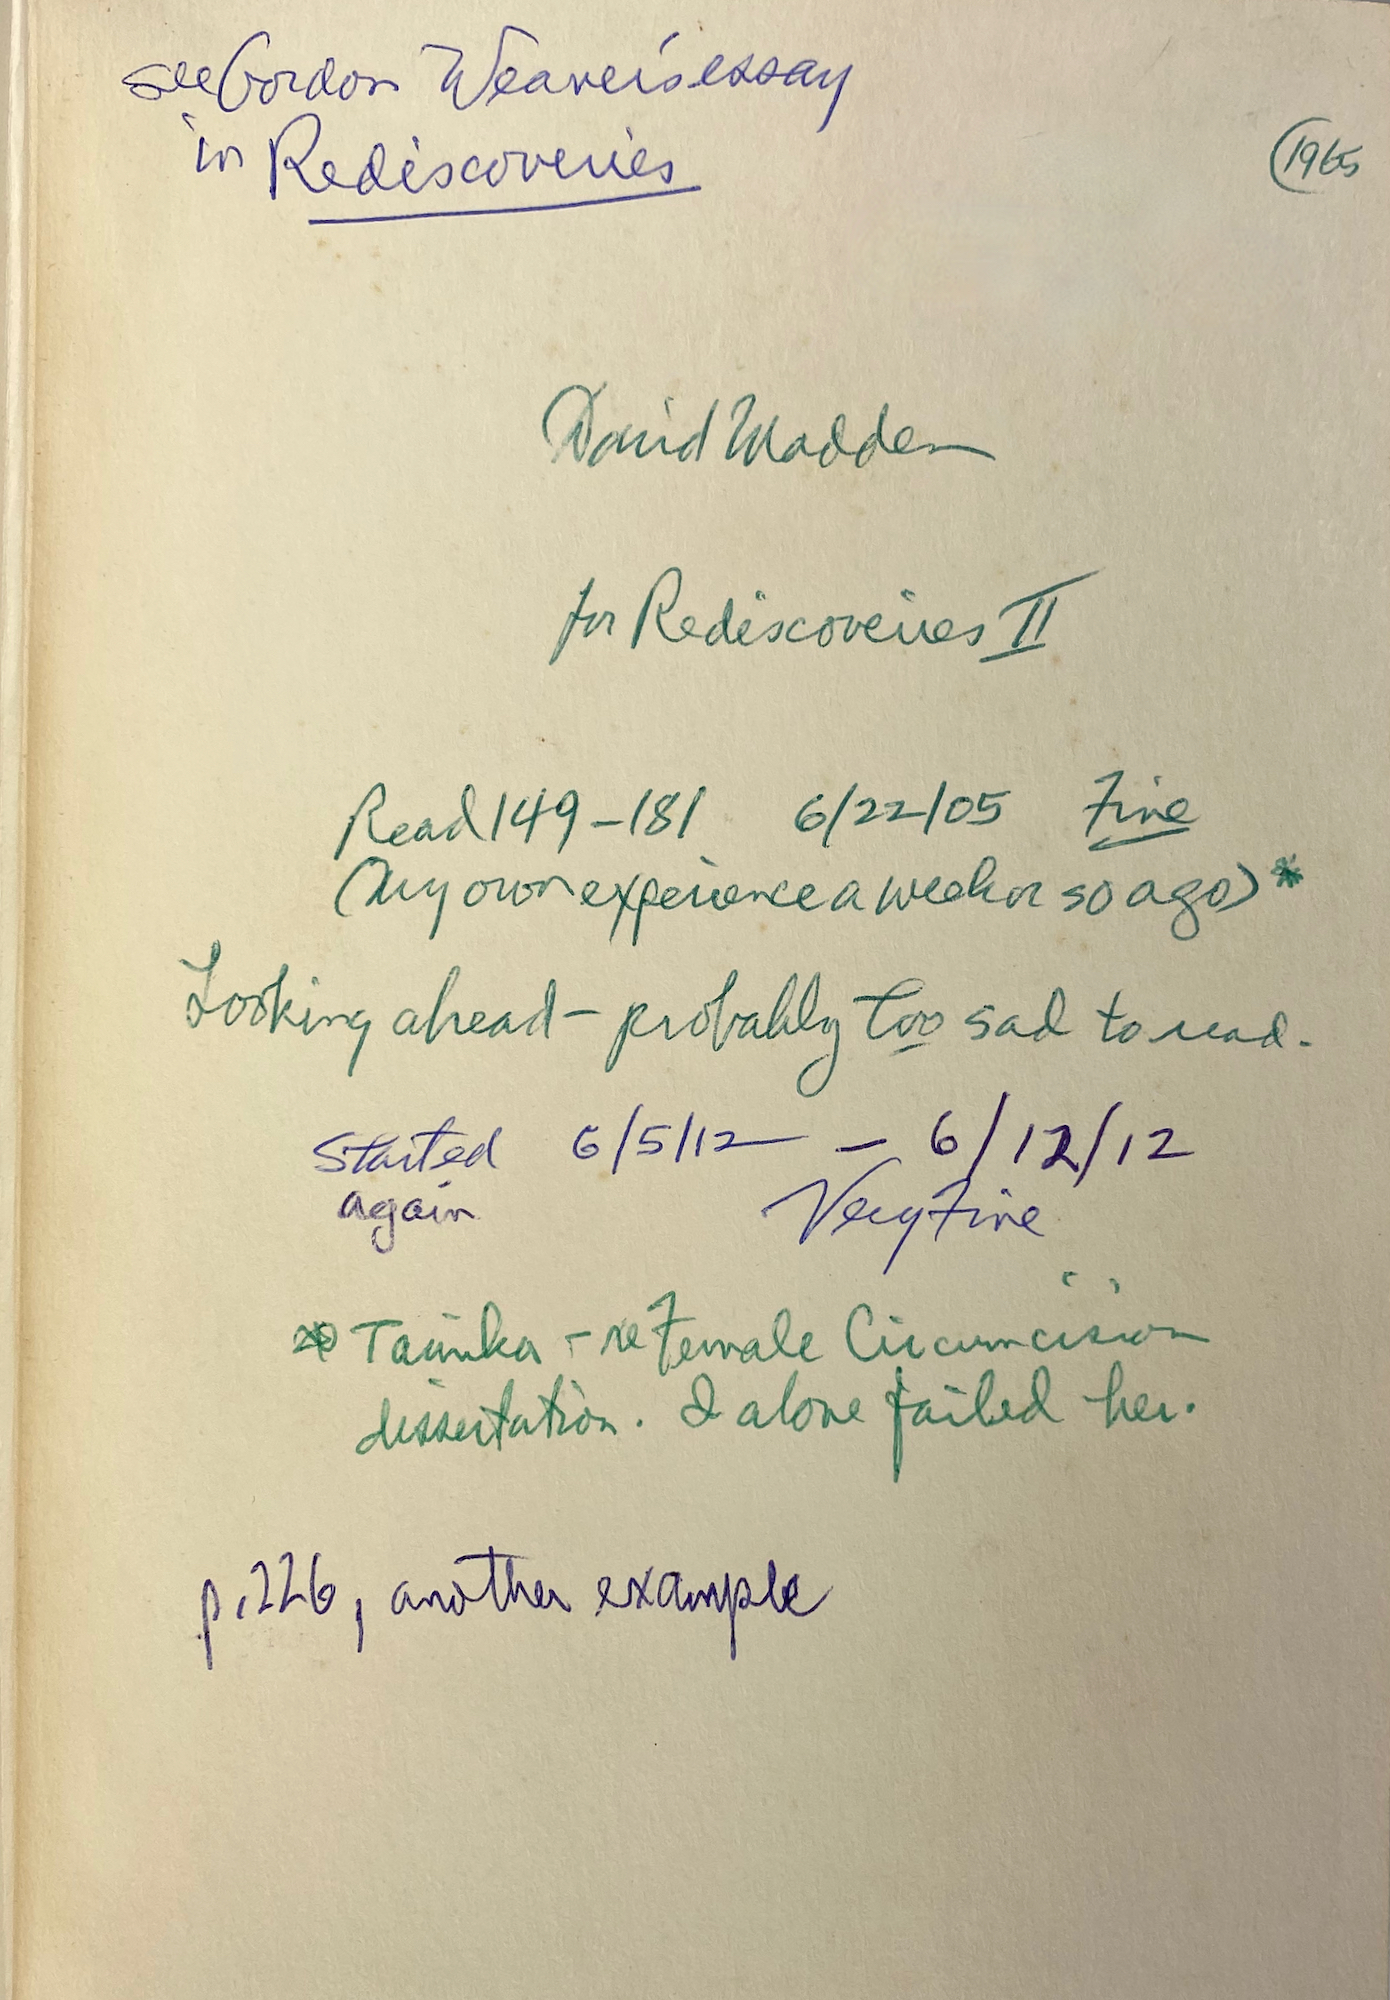 see Gordon Weaver's essay
in Rediscoveries
(1965
David Madden
for Rediscoveries II
Read 149-181 6/22/05 Fine
(My own experience a week or so ago) *
Looking ahead - probably too sad to read.
Started 6/5/12 - 6/12/12
again Very Fine
* - re Female Circumcision
dissertation. I alone failed her.
p. 226, another example